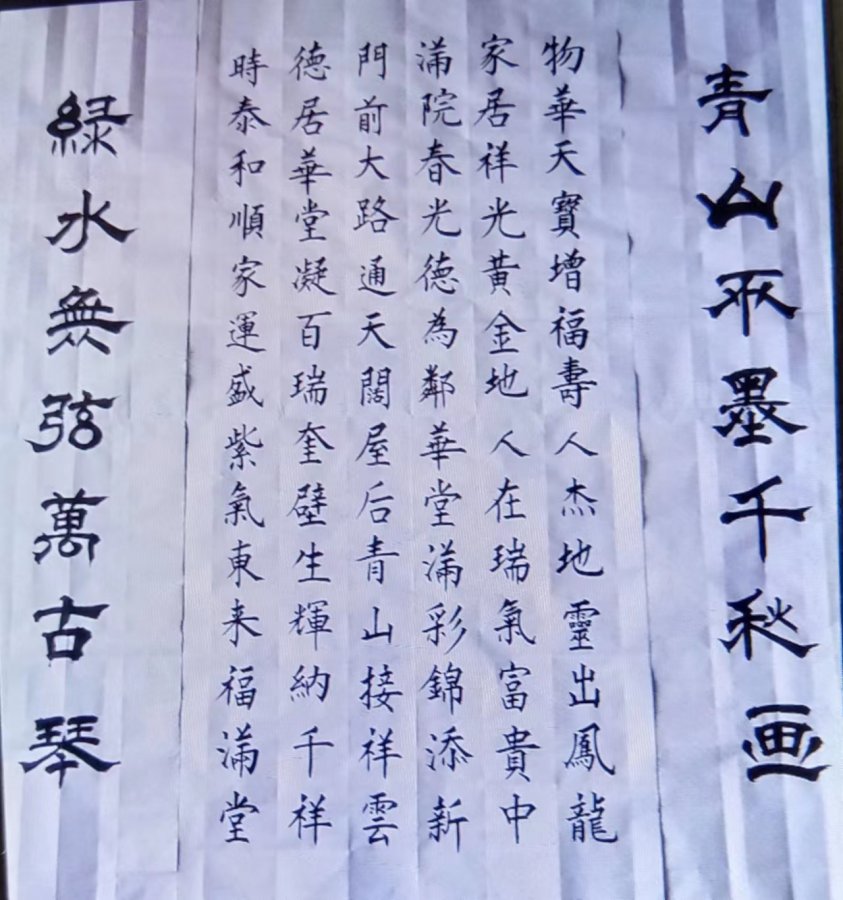 青山不墨千秋画
物華天寶增福壽人杰地靈出鳳龍
家居祥光黃金地人在瑞氣富貴中
滿院春光德為鄰華堂滿彩錦添新
門前大路通天闊屋后青山接祥雲
德居華堂凝百瑞奎壁生輝納千祥
時泰和順家運盛紫氣東来福滿堂
緑水無弦萬古琴